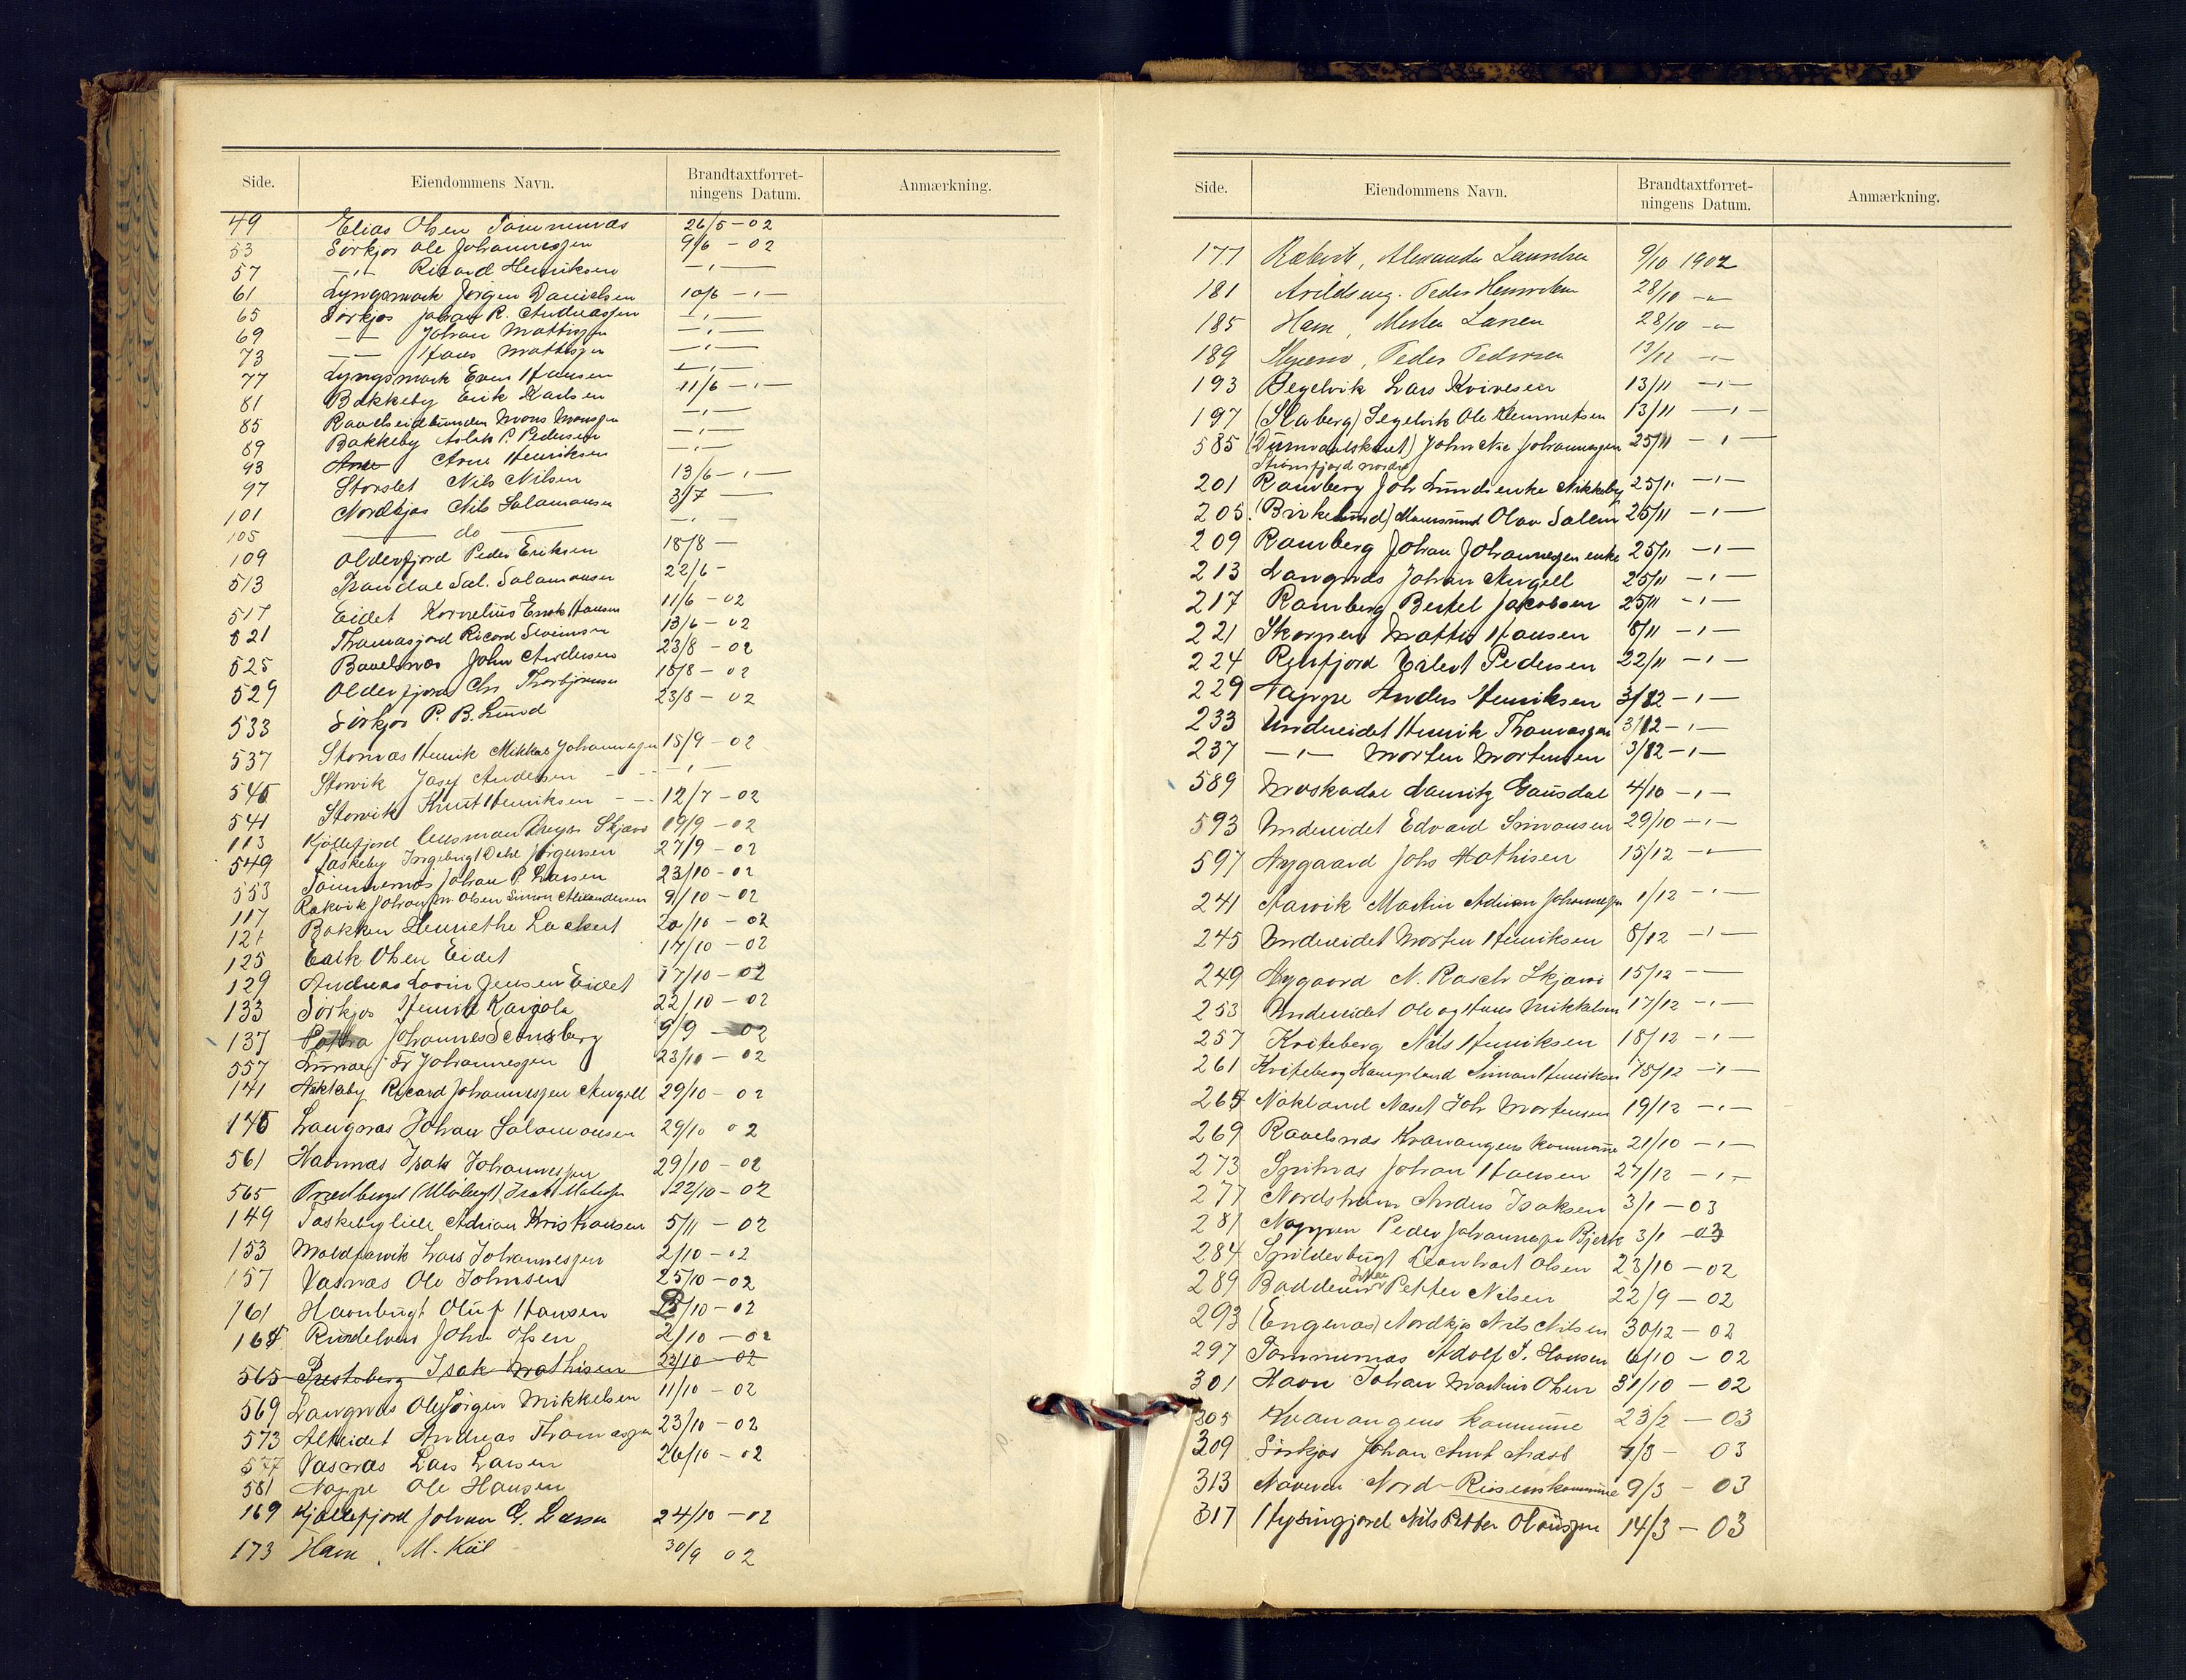 Side. Eiendommens Navn. Brandtaxtforret- ningens Datum. Anmærkning.
49 Elias Olsen Sommernæs 26/5 - 02
53 Sörkjos Ole Johannessen 9/6 - 02
57 -"- Ricard Henriksen -"-
61 Lyngsmark Jörgen Danielsen 10/6 -"-
65 Sörkjos Johan R. Andreassen -"-
69 -"- Johan Mattissen -"-
73 -"- Hans Mattissen -"-
77 Lyngsmark Even Hansen -"-
81 Bakkeby Erik Karlsen 11/6 -"-
85 Mons Monsen -"-
89 Bakkeby Aslak P. Pedersen -"-
93 Arne Henriksen -"-
97 Storslet Nils Nilsen 13/6 -"-
101 Nordkjos Nils Salamonsen 3/7 -
105 do -"-
109 Olderfjord Peder Eriksen 18/8 -
513 Sal. Salamonsen 22/6 -
517 Eidet Kornelius Erik Hansen 11/6 - 02
521 Ricard 13/6 - 02
525 John Andersen 23/8 - 02
529 Olderfjord Chr. Thorbjörnsen 18/8 - 02
533 Sörkjos P. B. Lund 23/8 - 02
537 Stornæs Henrik Mikkal Johannessen 15/9 - 02
545 Storvik Josef Andersen -"-
541 Storvik Knut Henriksen 12/7 - 02
113 Kjöllefjord Skjærvö 19/9 - 02
549 Taskeby Ingebrigt Dahl Jörgensen 27/9 - 02
553 Sommernæs Johan P. Larsen 23/10 - 02
117 Rakvik Johan M. Olsen Simon Alexandersen 9/10 - 02
121 Bakken Henriethe Lackert 20/10 - 02
125 Erik Olsen Eidet 14/10 - 02
129 Andreas Jensen Eidet 17/10 - 02
133 Sörkjos Henrik 22/10 - 02
137 Johannes 9/9 - 02
557 Fr Johannessen 23/10 - 02
141 Nikkeby Ricard Johannessen Angell 29/10 - 02
145 Langnæs Johan Salamonsen 29/10 02
561 Havnnæs Isak Johannessen 29/10 - 02
565 22/10 - 02
149 Taskeby lille Adrian Kristiansen 5/11 - 02
153 Lars Johannessen 2/10 - 02
157 Vasnæs Ole Johnsen 25/10 - 02
161 Havnbugt Oluf Hansen /10 - 02
165 John Olsen 2/10 - 02
565 Presteberg Isak Mathisen 22/10 - 02
569 Langnæs Ole Jörgen Mikkelsen 11/10 - 02
573 Alteidet Andreas Thomassen 23/10 - 02
577 Vasnæs Lars Larsen 26/10 - 02
581 Nappe Ole Hansen
169 Kjöllefjord Johan G. Larsen 24/10 - 02
173 Havn, M. Kiil 30/9 02
Side. Eiendommens Navn. Brandtaxtforret- ningens Datum. Anmærkning.
177 Rakvik, Alexander Lauritsen 9/10 1902
181 Arildseng. Peder Henriksen 28/10 -"-
185 Havn, Morten Larsen 28/10 -"-
189 Peder Pedersen 17/12 -"-
193 Segelvik Lars Kvivesen 13/11 -"-
197 (Slaberg) Segelvik Ole Klemmetsen 13/11 -"-
585 John Nic Johannessen 25/11 -"-
Strömfjord nordre
201 Ramberg Joh Lunds enke Nikkeby 25/11 -"-
205 (Birkelund) Maursund Olav Salen 25/11 -"-
209 Ramberg Johan Johannessen enke 25/11 -"-
213 Langnæs Johan Angell 25/11 -"-
217 Ramberg Bertel Jakobsen 25/11 -"-
221 Skorpen Mattis Hansen 8/11 -"-
224 Reisfjord Eilert Pedersen 22/11 -"-
229 Nappe Anders Henriksen 3/12 -"-
233 Undereidet Henrik Thomassen 3/12 -"-
237 -"- Morten Mortensen 3/12 -"-
589 Moskodal Lauritz Gausdal 4/10 -"-
593 Undereidet Edvard Simonsen 29/10 -"-
597 Nygaard Johs Mathisen 15/12 -"-
241 Aarvik Martin Adrian Johannessen 1/12 -"-
245 Undereidet Morten Henriksen 8/12 -"-
249 Nygaard N. Rasch Skjærvö 15/12 -
253 Undereidet Ole og Hans Mikkelsen 17/12 -"-
257 Kviteberg Nils Henriksen 18/12 -"-
261 Kviteberg Simon Henriksen 18/12 -"-
265 Nökland Næset Joh Mortensen 19/12 -"-
269 Ravelsnæs Kvænangens kommune 21/10 -"-
273 Spilnæs Johan Hansen 27/12 -"-
277 Nordström Anders Isaksen 3/1 - 03
281 Nappen Peder Johannessen Bjerk 3/1 - 03
284 Spilderbugt Leonhart Olsen 23/10 - 02
289 Badderen Petter Nilsen 22/9 - 02
293 (Engenæs) Nordkjos Nils Nilsen 30/12 - 02
297 Sommernæs Adolf S. Hansen 6/10 - 02
301 Havn Johan Martin Olsen 31/10 - 02
305 Kvænangens kommune 23/2 - 03
309 Sörkjos Johan Arnt 7/3 - 03
313 Naveren Nord-Reisens kommune 9/3 - 03
317 Hysingjord Nils Petter Olaussen 14/3 - 03